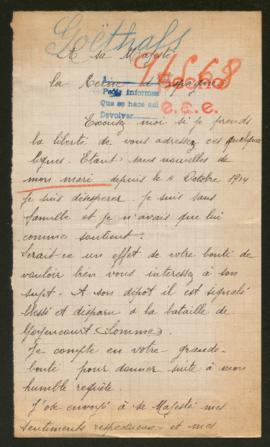 Goëthals
A sa Majesté
la Reine d'Espagne
Pase informes
Que se hace así
Devolver
Excusez moi si je prends
la liberté de vous adressez ces quelques
lignes. Etant sans nouvelles de
mon mari depuis le 4 Octobre 1914
je suis désespérer. Je suis sans
famille et je n'avais que lui
comme soutient.
Serait-ce un effet de votre bonté de
vouloir bien vous interessez à son
sujet. A son dépôt il est signalé
blessé et disparu à la bataille de
Goyencourt (Somme).
Je compte en votre grande
bonté pour donner suite à mon
humble requête.
J'ose envoyé à sa Majesté mes
sentiments respectueux et mes